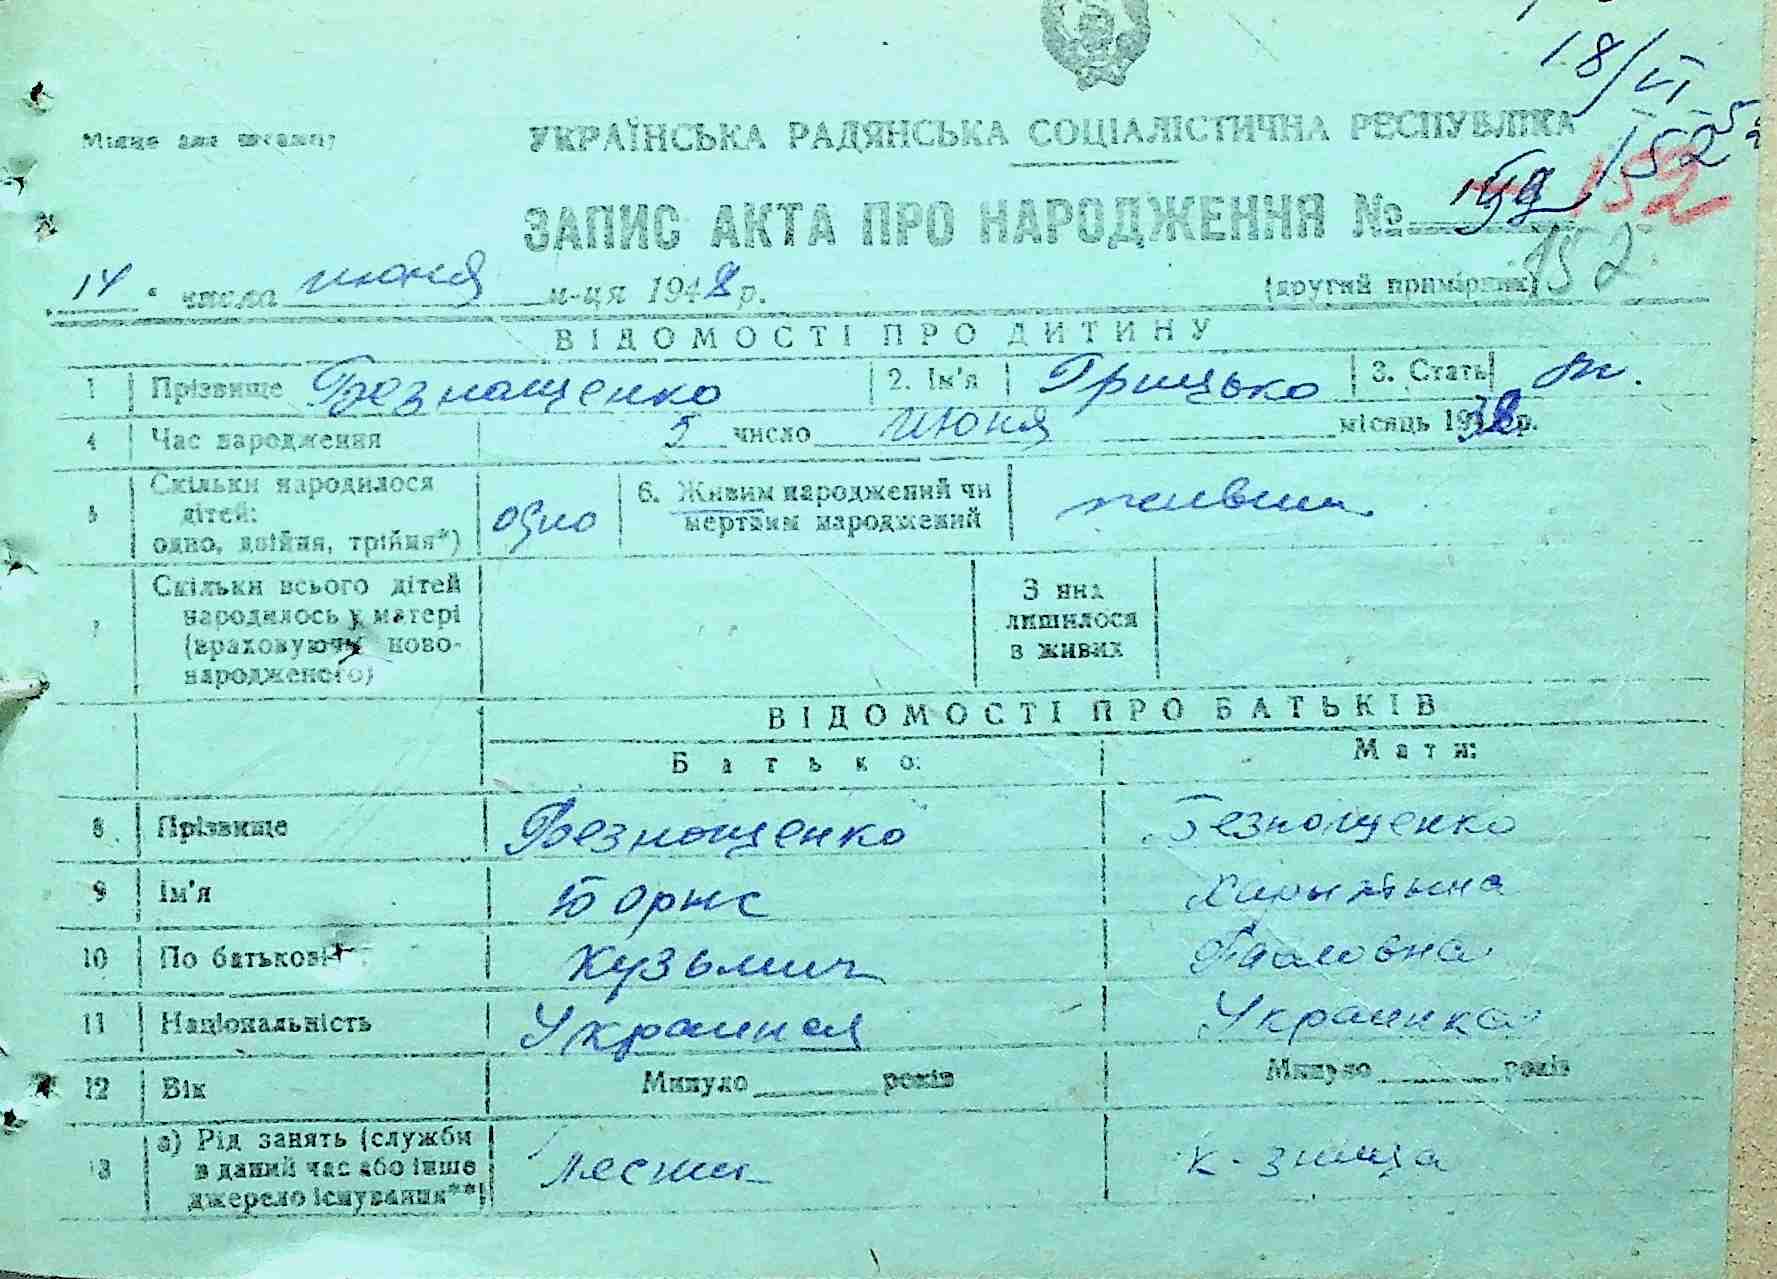 18/VI
52
Місце для штампу
УКРАЇНСЬКА РАДЯНСЬКА СОЦІАЛІСТИЧНА РЕСПУБЛІКА
152
ЗАПИС АКТА ПРО НАРОДЖЕННЯ №
152
14 " числа июня м-ця 1948 р.
(другий примірник)
ВІДОМОСТІ ПРО ДИТИНУ
1 Прізвище Безнощенко 2. Ім'я Грицько 3. Стать м.
4 Час народження 5 число июня місяць 1938 р.
5 Скільки народилося дітей: одно, двійня, трійня*) одно 6. Живим народжений чи мертвим народжений живым
7 Скільки всього дітей народилось у матері (враховуючи новонародженого) З них лишилося в живих
ВІДОМОСТІ ПРО БАТЬКІВ
Батько: Мати:
8 Прізвище Безнощенко Безнощенко
9 Ім'я Борис
10 По батькові Кузьмич Павловна
11 Національність Украинец Украинка
12 Вік Минуло років Минуло років
13 а) Рід занять (служби в даний час або інше джерело існування**) к-зница